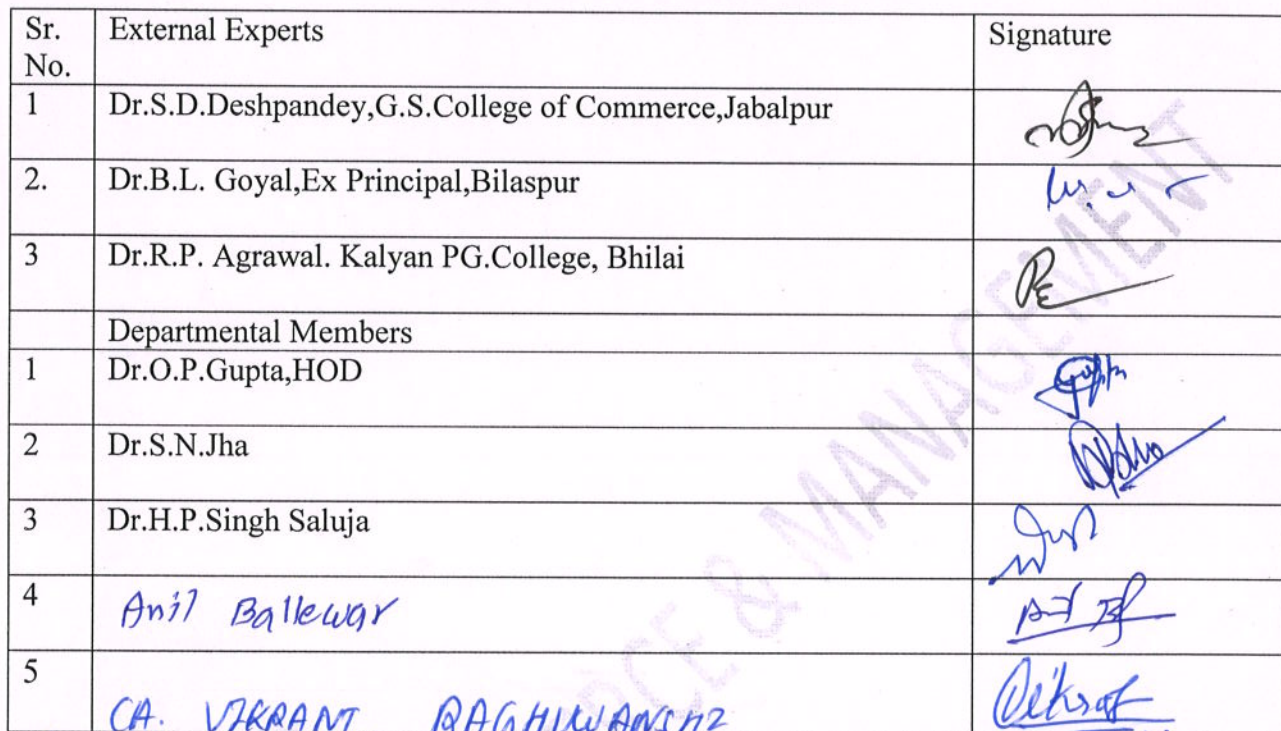 Sr. No. External Experts Signature
1 Dr.S.D.Deshpandey,G.S.College of Commerce,Jabalpur
2. Dr.B.L. Goyal,Ex Principal,Bilaspur
3 Dr.R.P. Agrawal. Kalyan PG.College, Bhilai
Departmental Members
1 Dr.O.P.Gupta,HOD Gupta
2 Dr.S.N.Jha
3 Dr.H.P.Singh Saluja
4 Anil Ballewar
5 CA. VIKRANT RAGHUWANSHI Vikrant
& MANAGEMENT